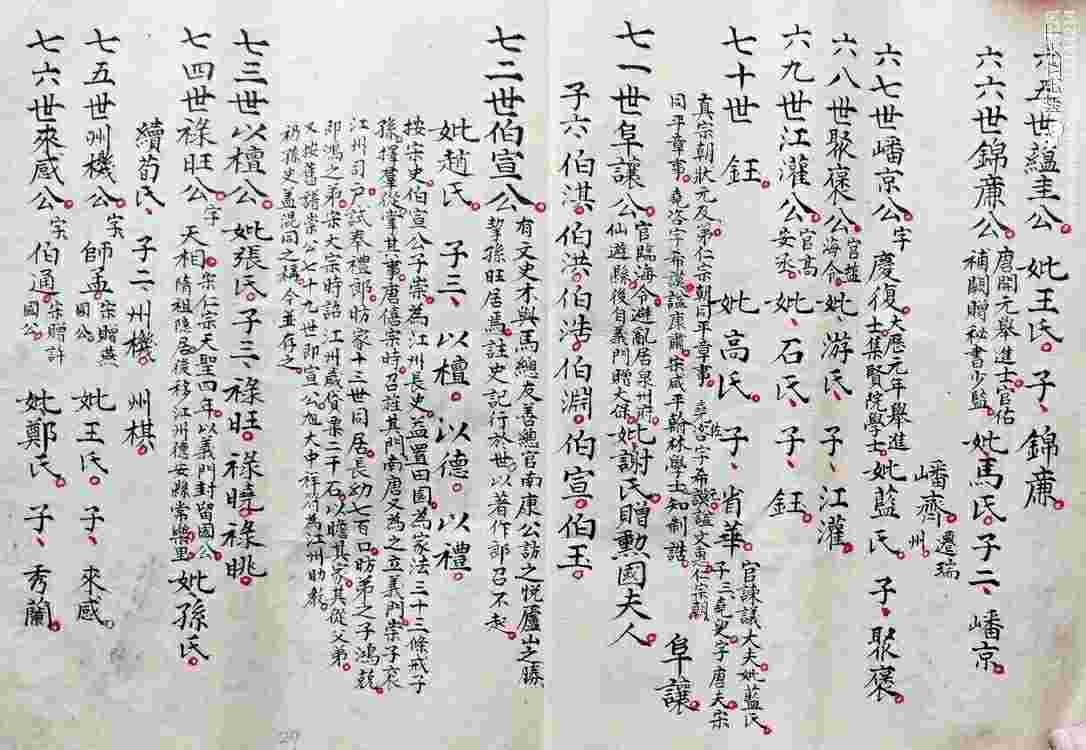 六五世蘊圭公 妣王氏 子 錦廉
六六世錦廉公 唐開元舉進士官佑補闕贈秘書少監 妣馬氏 子二 嶓京
嶓齊 遷瑞州
六七世嶓京公 字慶復 大歷元年舉進士集賢院學士 妣藍氏 子 聚褒
六八世聚褒公 官 海令 妣游氏 子 江灌
六九世江灌公 官高安丞 妣石氏 子 鈺
七十世 鈺 妣 高氏 子 省華 官諫議大夫妣藍氏子三堯叟字唐夫宋
真宗朝狀元及第仁宗朝同平章事 堯佐字希 謚文惠仁宗朝
同平章事 堯咨字希謨謚康肅宋咸平翰林學士知制誥 阜讓
七一世阜讓公 官臨海令避亂居泉州府仙遊縣後自義門贈大保 妣謝氏贈勳國夫人
子六 伯淇 伯洪 伯浩 伯淵 伯宣 伯玉
七二世伯宣公 有文史才與馬總友善總官南康公訪之悅廬山之勝挈孫旺居焉註史記行於世以著作郎召不起
妣趙氏 子三 以檀 以德 以禮
按宋史伯宣公子崇為江州長史益置田園為家法三十二條戒子
孫擇羣從掌其事唐僖宗時召旌其門南唐又為之立義門崇子袞
江州司戶試奉禮郎昉家十三世同居長幼七百口昉弟之子鴻兢
即鴻之弟宋大宗時詔江州歲貸粟二千石以贍其家其從父弟
又按舊譜崇公七十九世即宣公旭大中祥符為江州助教
裔孫史蓋混同之稱今並存之
七三世以檀公 妣張氏 子三 祿旺 祿曉 祿眺
七四世祿旺公 字天相 宋仁宗天聖四年以義門封留國公隋祖隐居後移江州德安縣常樂里 妣孫氏
續荀氏 子二 州機 州棋
七五世州機公 字師孟 宋贈燕國公 妣王氏 子 來咸
七六世來咸公 字伯通 宋贈許國公 妣鄭氏 子 秀蘭
29